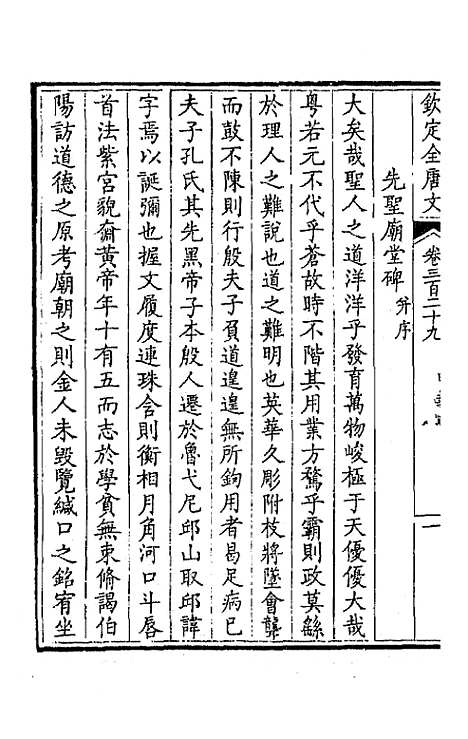 欽定全唐文 卷三百二十九 一
先聖廟堂碑 并序
大矣哉聖人之道洋洋乎發育萬物峻極于天優優大哉
粵若元不代乎蒼故時不階其用業方騖乎霸則政莫繇
於理人之難說也道之難明也英華久彫附枝將墜會龔
而鼓不陳則行殷夫子負道遑遑無所鉤用者曷足病已
夫子孔氏其先黑帝子本殷人遷於魯弋尼邱山取邱諱
字焉以誕彌也握文履度連珠含則衡相月角河口斗唇
首法紫宮貌裔黃帝年十有五而志於學貧無束脩謁伯
陽訪道德之原考廟朝之則金人未毀覽緘口之銘宥坐